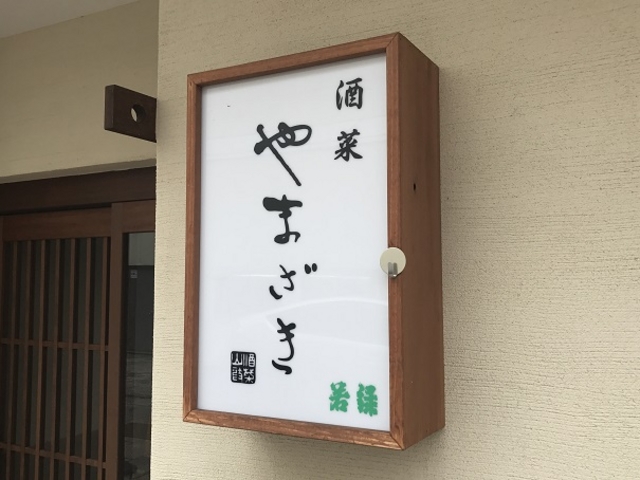 酒菜
やまざき
若緑